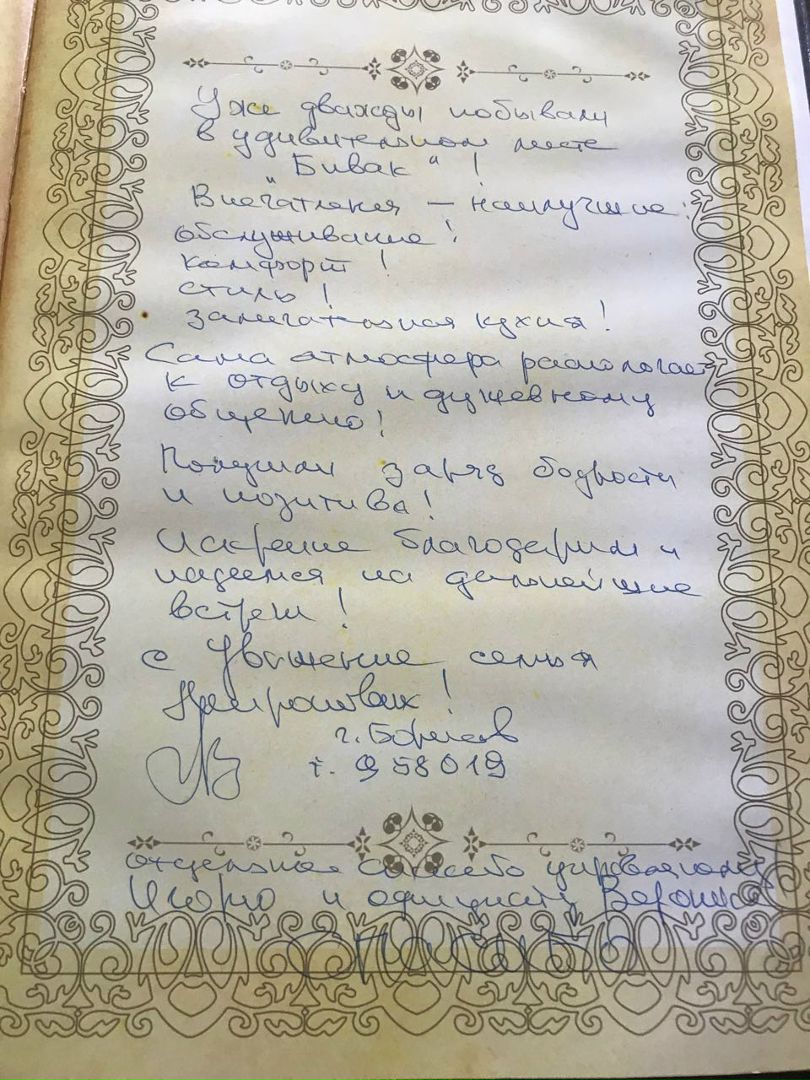 Уже дважды побывали
в удивительном месте
"Бивак"!
Впечатления – наилучшие:
обслуживание!
комфорт!
стиль!
замечательная кухня!
Сама атмосфера располагает
к отдыху и душевному
общению!
Получили заряд бодрости
и позитива!
Искренне благодарим и
надеемся на дальнейшие
встречи!
с уважением семья
г. Борисов
т. 958019
отдельное спасибо управляющему
Игорю и официанту Веронике
СПАСИБО